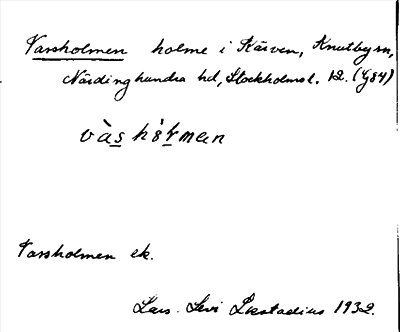 Varsholmen holme i Kärven, Knutby sn,
Närdinghundra hd, Stockholms l. 12. (G84)
vàs hòłman
Varsholmen ek.
Lars-Levi Læstadius 1932.